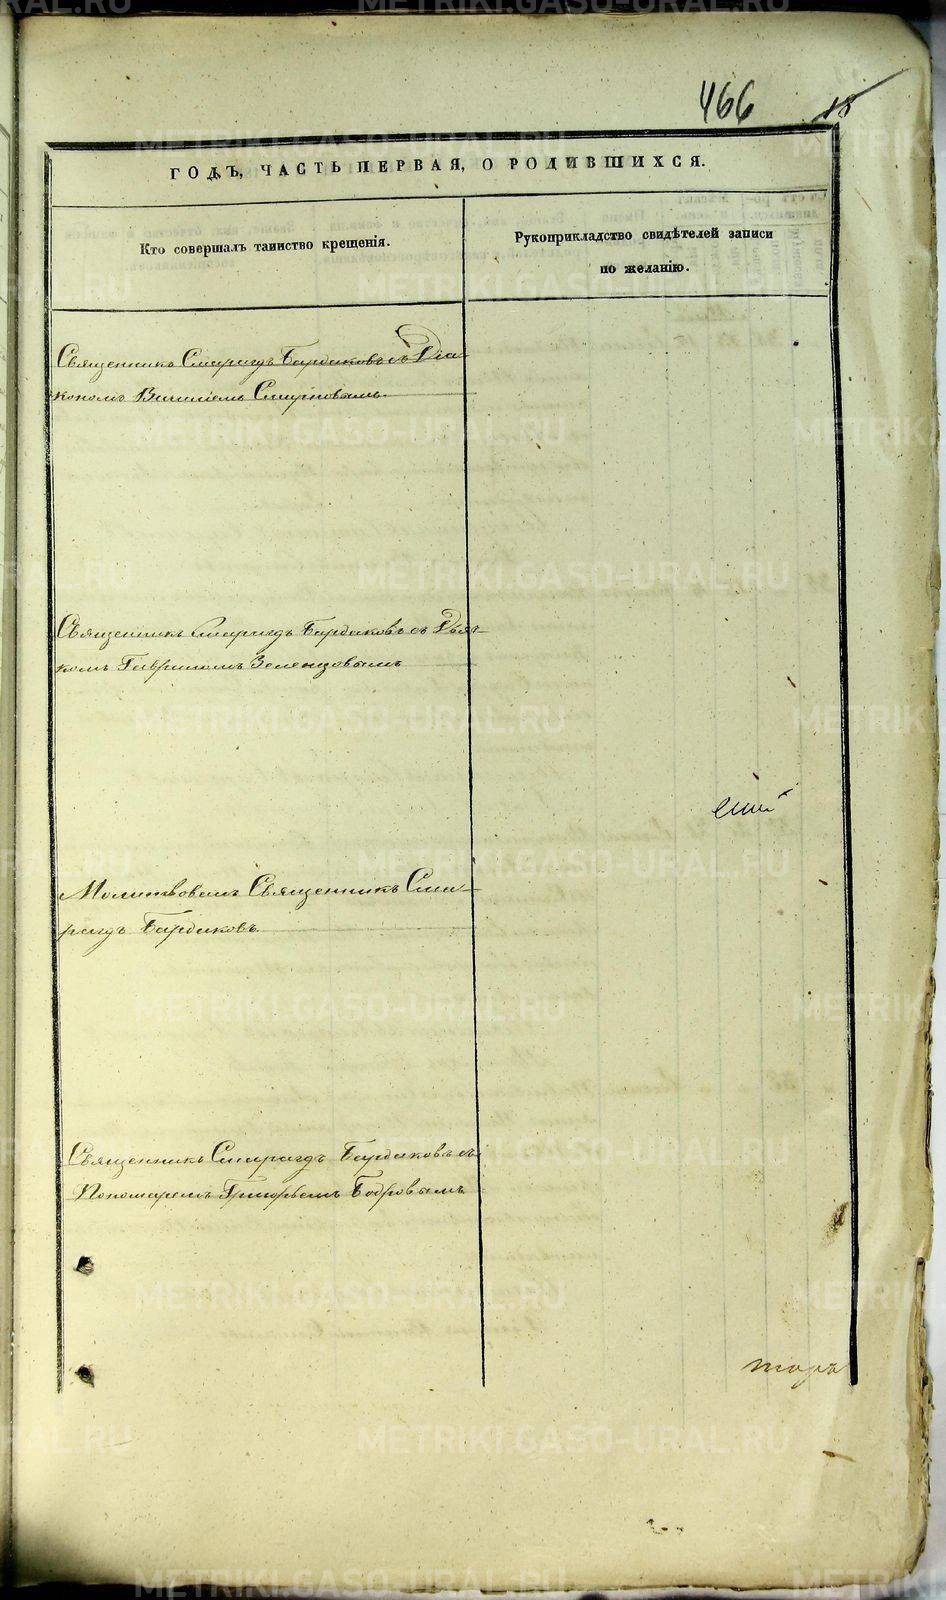 466
18
ГОДЪ, ЧАСТЬ ПЕРВАЯ, О РОДИВШИХСЯ.
Кто совершалъ таинство крещенія.
Рукоприкладство свидѣтелей записи
по желанію.
Священникъ Смарагдъ Бардаковъ съ Діа-
кономъ Смирновымъ.
Священникъ Смарагдъ Бардаковъ съ Дьяч-
комъ Гавриломъ Зеленцовымъ
Молитвовалъ Священникъ Сма-
рагдъ Бардаковъ.
Священникъ Смарагдъ Бардаковъ съ
Пономаремъ Григорьемъ Бобровымъ
METRIKI.GASO-URAL.RU